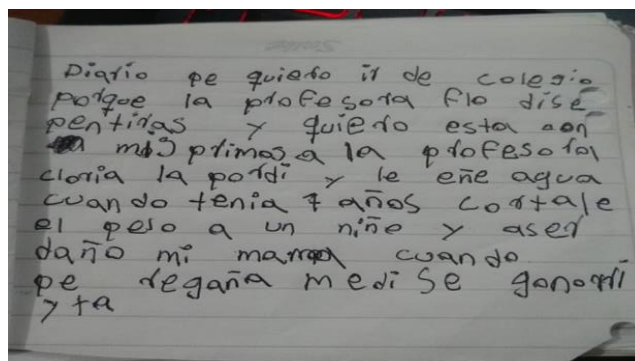 Diario pe quiero ir de colegio
porque la profesora flo dise
pentiras y quiero esta con
mis primos a la profesora
cloria la pordi y le eñe agua
cuando tenia 7 años cortale
el peso a un niñe y aser
daño mi mama cuando
pe regaña medi se gonorri
y ta